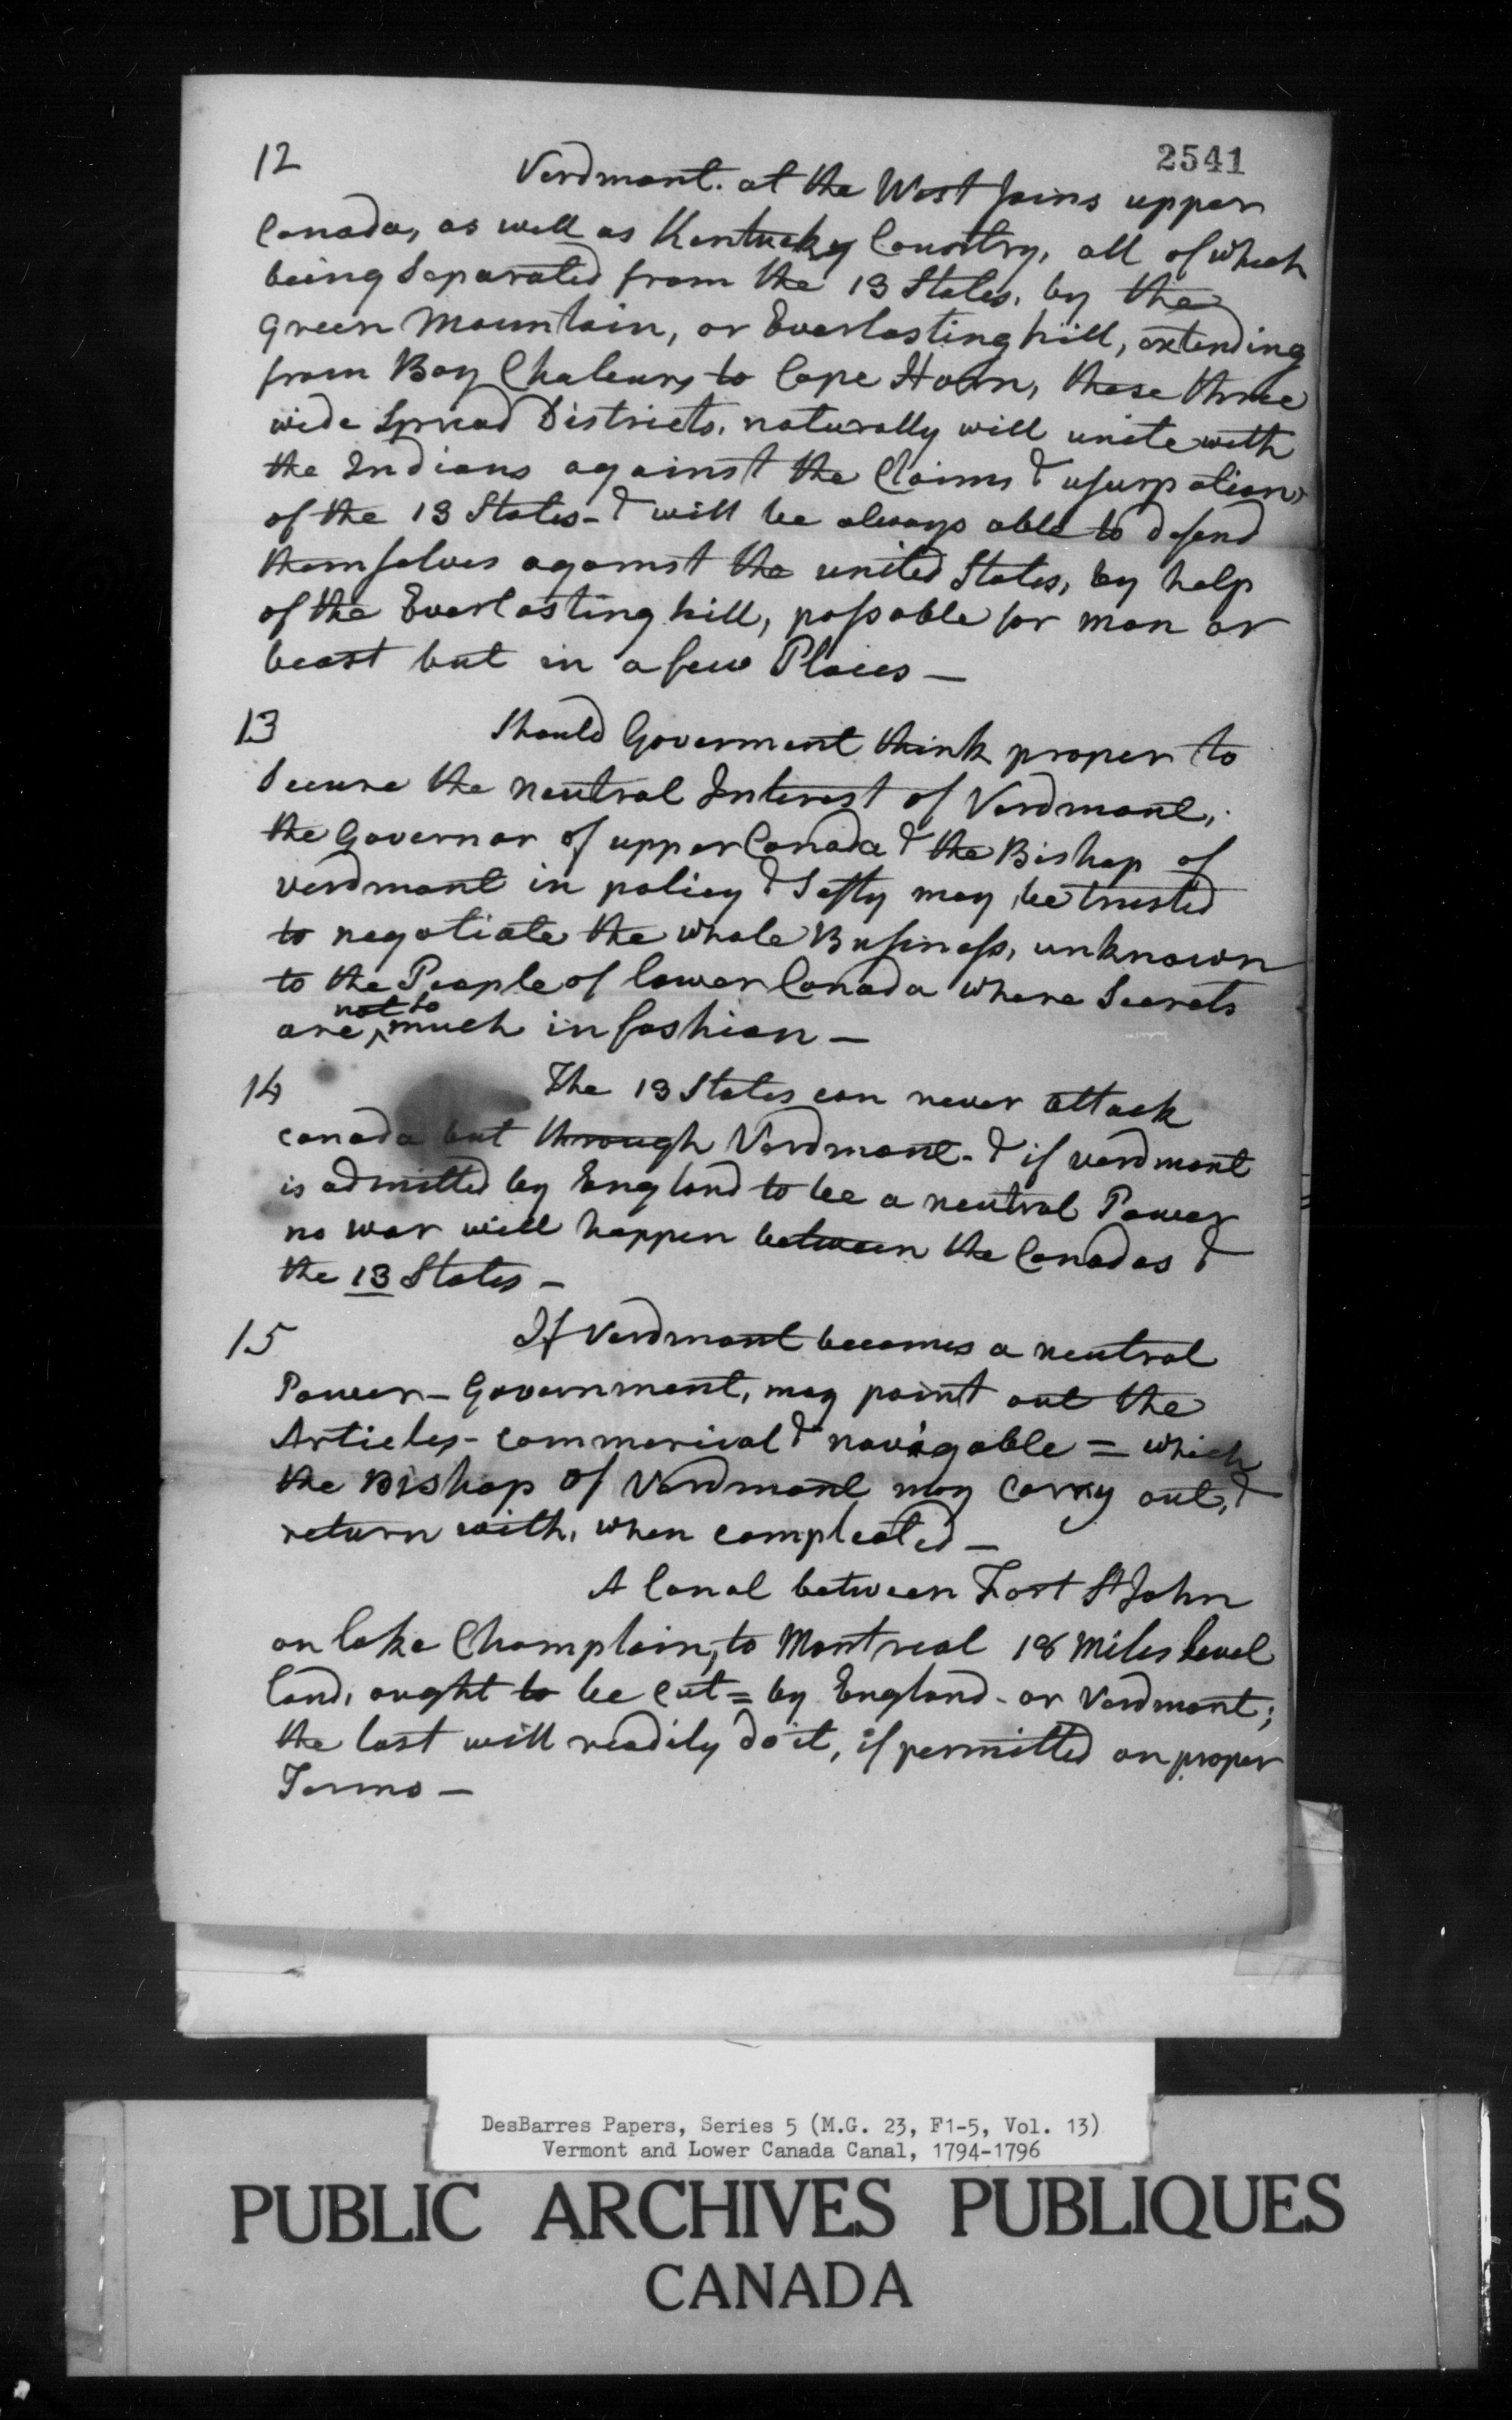 2541
12 Verdmont. at the West joins upper
Canada, as well as Kentucky Country, all of which
being Separated from the 13 States, by the
green Mountain, or Everlasting hill, extending
from Bay Chaleurs to Cape Hoarn, these three
wide Spread Districts, naturally will unite with
the Indians against the Claims & usurpations
of the 13 States - & will be always able to defend
themselves against the united States, by help
of the Everlasting hill, passable for man or
beast but in a few Places —
13 Should Goverment think proper to
Secure the neutral Interest of Verdmont,
the Governor of upper Canada & the Bishop of
verdmont in policy & Safty may be trusted
to negotiate the whole Business, unknown
to the People of lower Canada where Secrets
are not to much in fashion —
14 The 13 States can never attack
canada but through Verdmont - & if verdmont
is admitted by England to be a neutral Power
no war will happen between the Canadas &
the 13 States —
15 If Verdmont becomes a neutral
Power - Government, may point out the
Articles - commerical & navigable = which
the Bishop of Verdmont may carry out, &
return with, when compleated —
A Canal between Fort St John
on lake Champlain, to Montreal 18 Miles level
land, ought to be cut = by England - or Verdmont;
the last will readily do it, if permitted on proper
Terms —
DesBarres Papers, Series 5 (M.G. 23, F1-5, Vol. 13)
Vermont and Lower Canada Canal, 1794-1796
PUBLIC ARCHIVES PUBLIQUES
CANADA